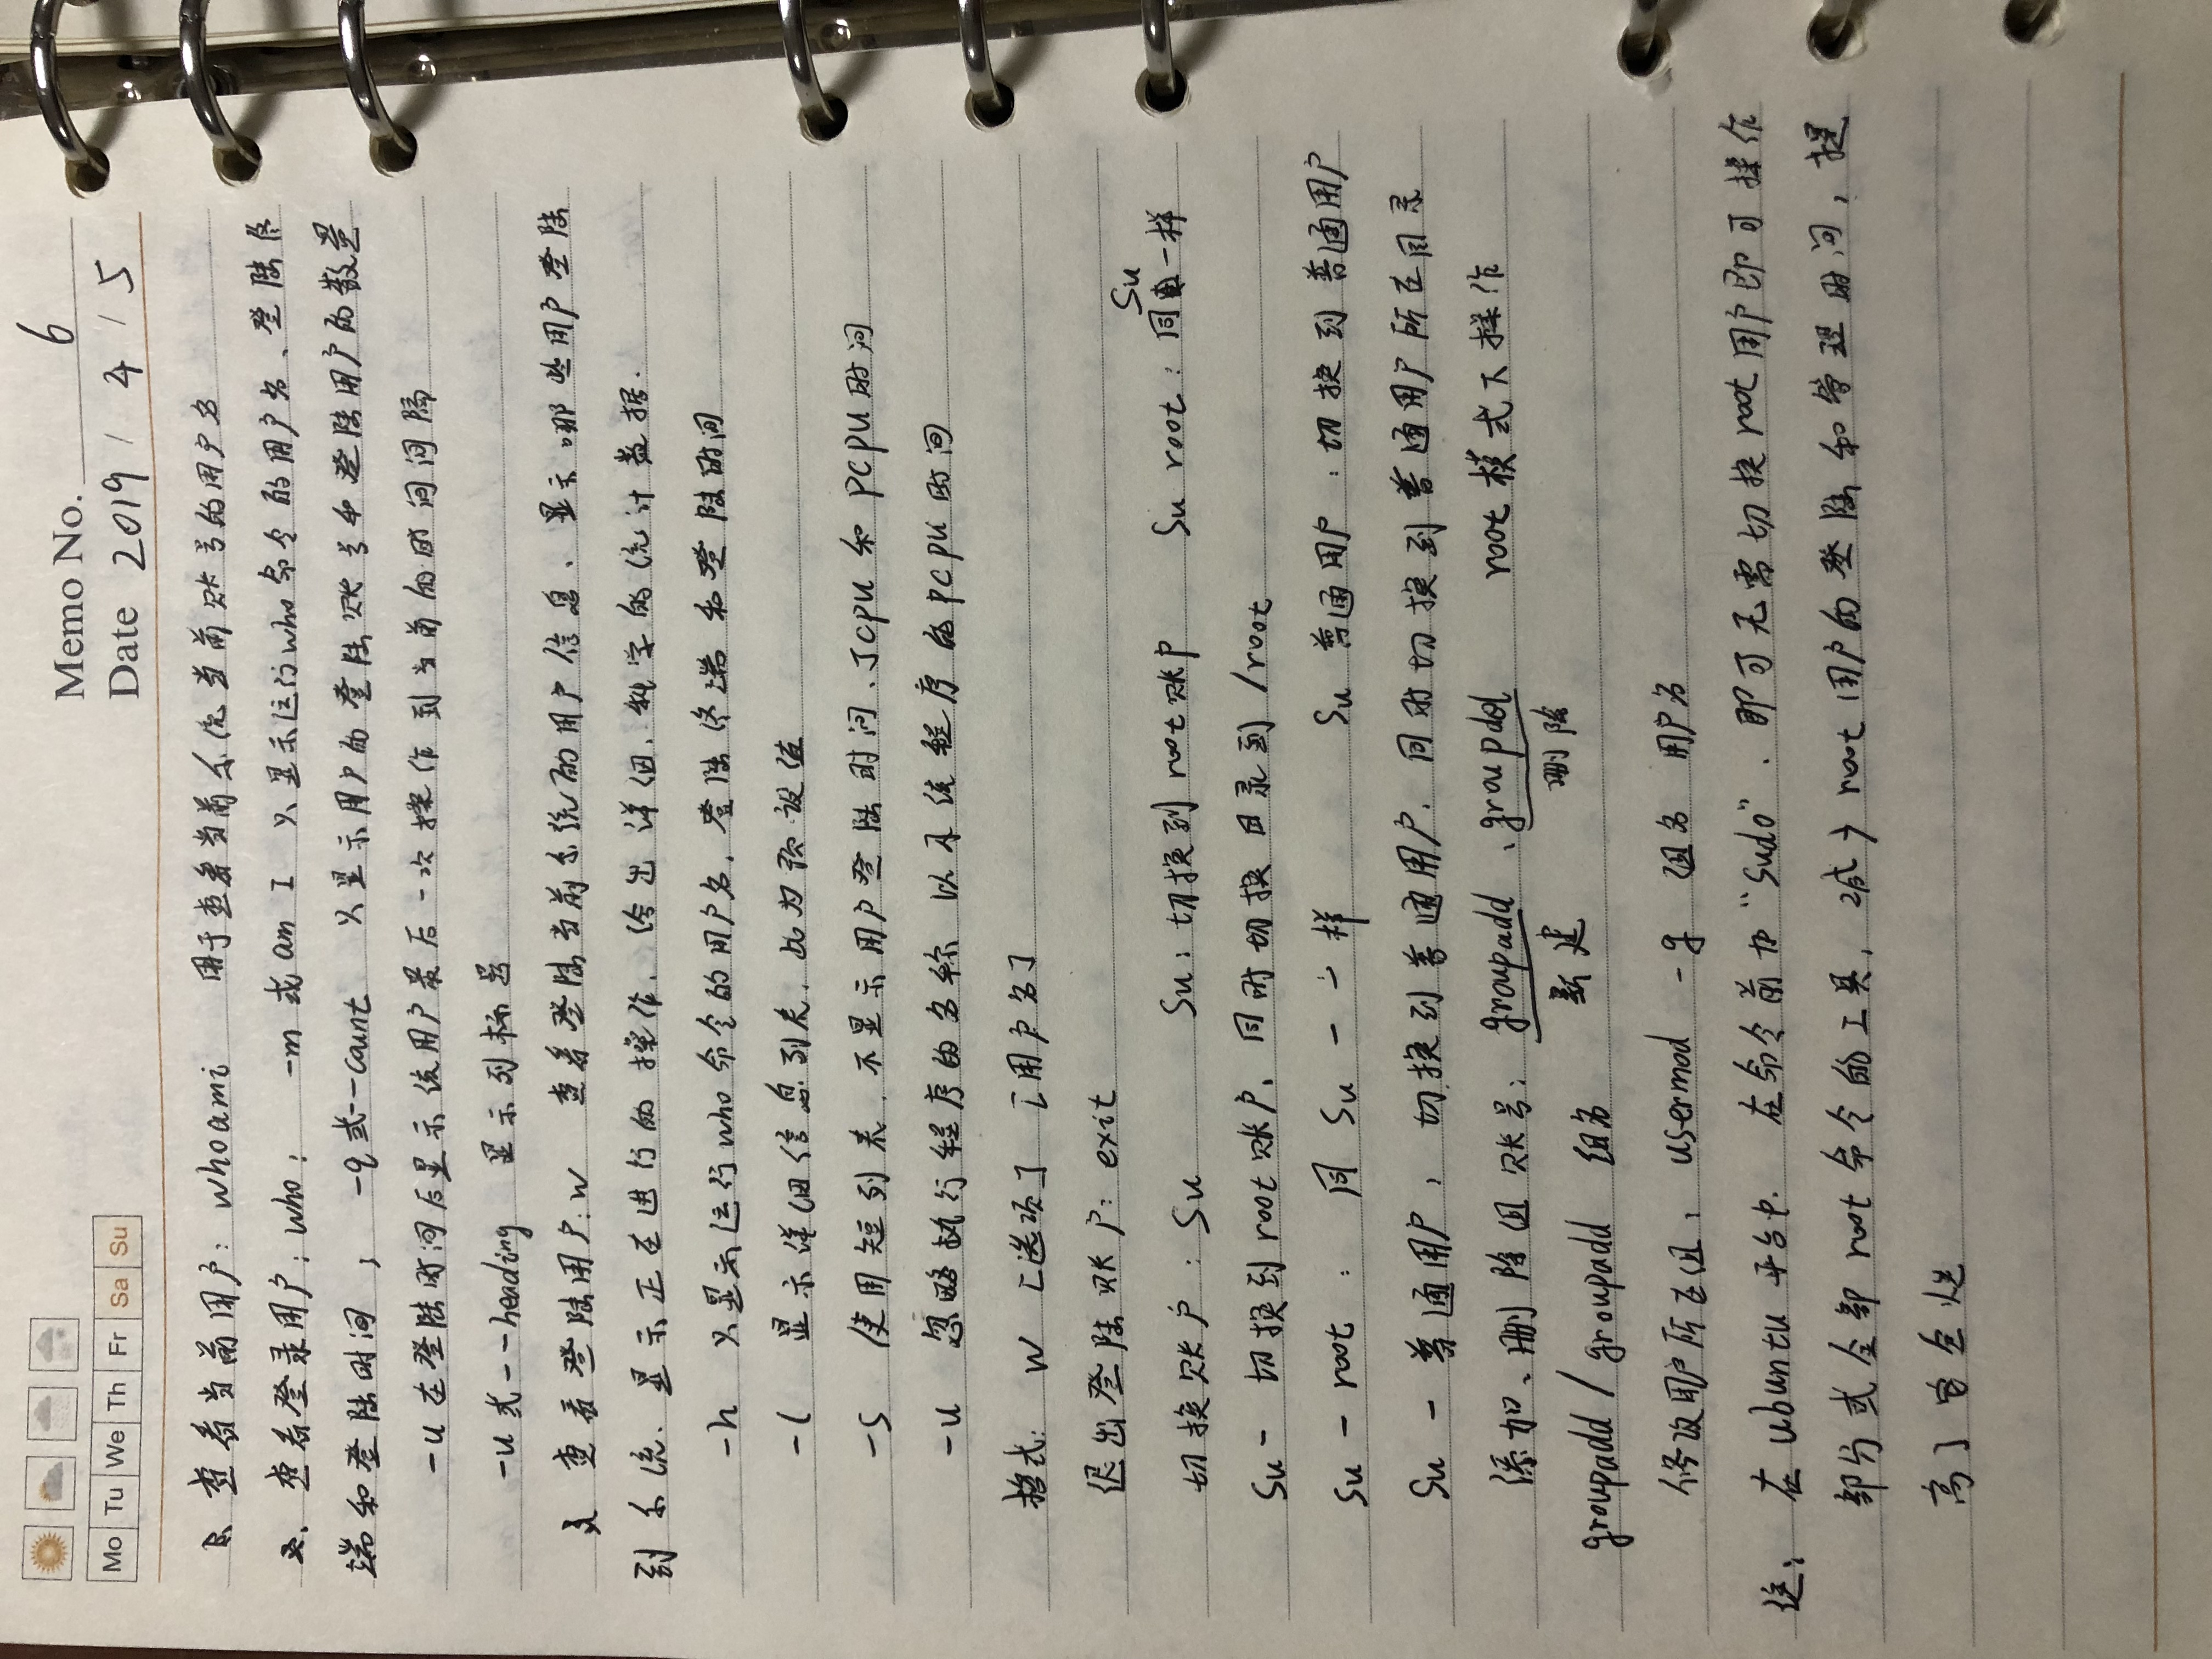 Memo No. 6
Mo Tu We Th Fr Sa Su
Date 2019 / 4 / 5
查看当前用户: whoami 用于查看当前系统当前账号的用户名
查看登录用户: who: -m 或 am I 只显示运行who命令的用户名、登陆终
端和登陆时间; -q 或--count 只显示用户的登陆账号和登陆用户的数量
-u 在登陆时间后显示该用户最后一次操作到当前的时间间隔
-u 或 --heading 显示列标题
查看登陆用户: w 查看登陆当前系统的用户信息、显示哪些用户登陆
到系统、显示正在进行的操作、给出详细、科学的统计数据.
-h 只显示运行who命令的用户名, 登陆终端和登陆时间
-l 显示详细信息列表, 此为预设值
-s 使用短列表, 不显示用户登陆时间、Jcpu 和 Pcpu时间
-u 忽略执行程序的名称 以及该程序的pcpu时间
格式: w [选项] [用户名]
退出登陆账户: exit
切换账户: Su Su: 切换到root账户 Su root: 同Su一样
Su - 切换到root账户, 同时切换目录到 /root
Su - root : 同 Su - 一样 Su 普通用户 : 切换到普通用户
Su - 普通用户; 切换到普通用户, 同时切换到普通用户所在目录
添加、删除组账号: groupadd 、groupdel root模式下操作
新建 删除
groupadd / groupadd 组名
修改用户所在组: usermod -g 组名 用户名
注: 在 ubuntu 平台中. 在命令前加 "Sudo". 即可无需切换root用户即可操作
部分或全部 root 命令的工具, 减少root用户的登陆和管理时间, 提
高了安全性